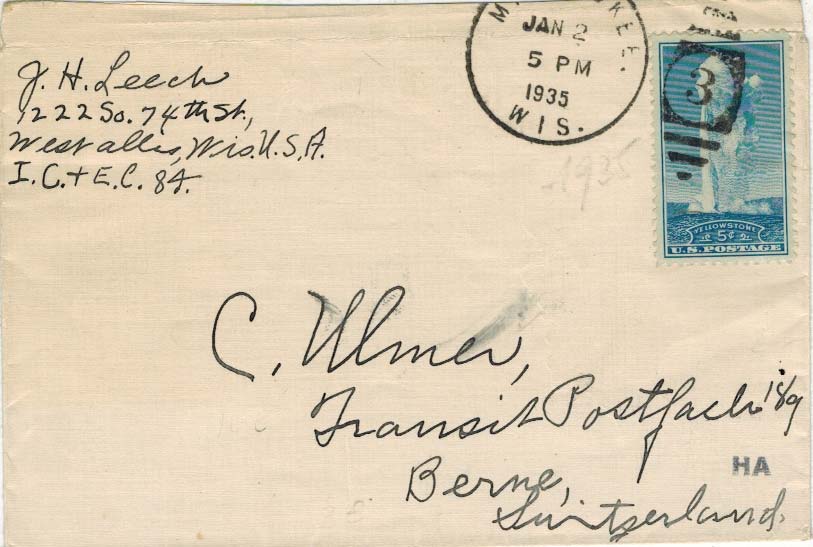 J. H. Leech
1222 So. 74th St.,
West Allis, Wis. U.S.A.
I.C. + E.C. 84.
JAN 2
5 PM
1935
WIS.
3
YELLOWSTONE
5¢
U.S. POSTAGE
1935
C. Ulmer,
Transit Postfach 189
HA
Berne,
Switzerland.